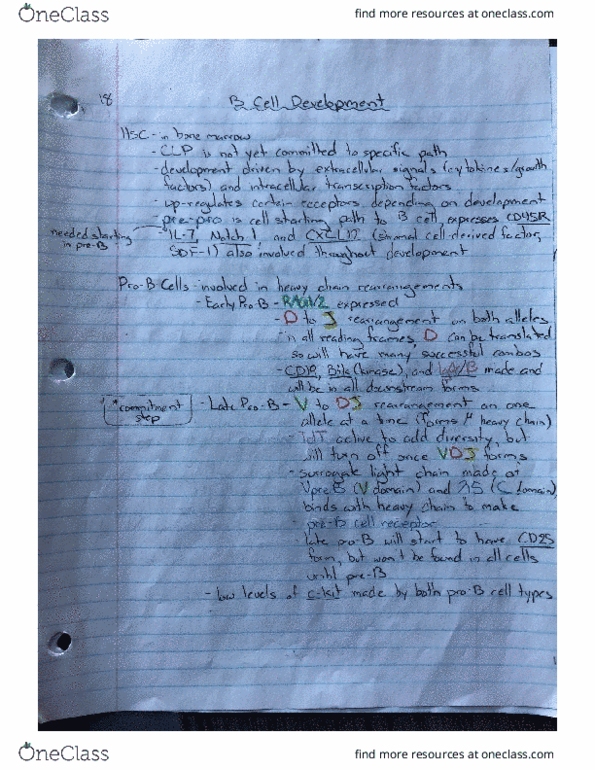 OneClass
find more resources at oneclass.com
18
B Cell Development
HSC - in bone marrow
- CLP is not yet committed to specific path
- development driven by extracellular signals (cytokines/growth
factors) and intracellular transcription factors
- up-regulates certain receptors, depending on development
- pre-pro is cell starting path to B cell, expresses CD45R
needed starting
in pre-B
- IL-7, Notch 1, and CXCL12 (stromal cell-derived factor,
SDF-1) also involved throughout development
Pro-B Cells - involved in heavy chain rearrangements
- Early Pro B - RAG1/2 expressed
- D to J rearrangement on both alleles
in all reading frames, D can be translated
so will have many successful combos
- CD19, (kinase), and made and
will be in all downstream forms
*commitment
step
- Late Pro-B - V to DJ rearrangement on one
allele at a time (forms μ heavy chain)
- TdT active to add diversity, but
will turn off once VDJ forms
- surrogate light chain made of
VpreB (V domain) and λ5 (C domain),
binds with heavy chain to make
pre-B cell receptor
- late pro-B will start to have CD25
form, but won't be found in all cells
until pre-B
- low levels of c-kit made by both pro-B cell types
OneClass
find more resources at oneclass.com